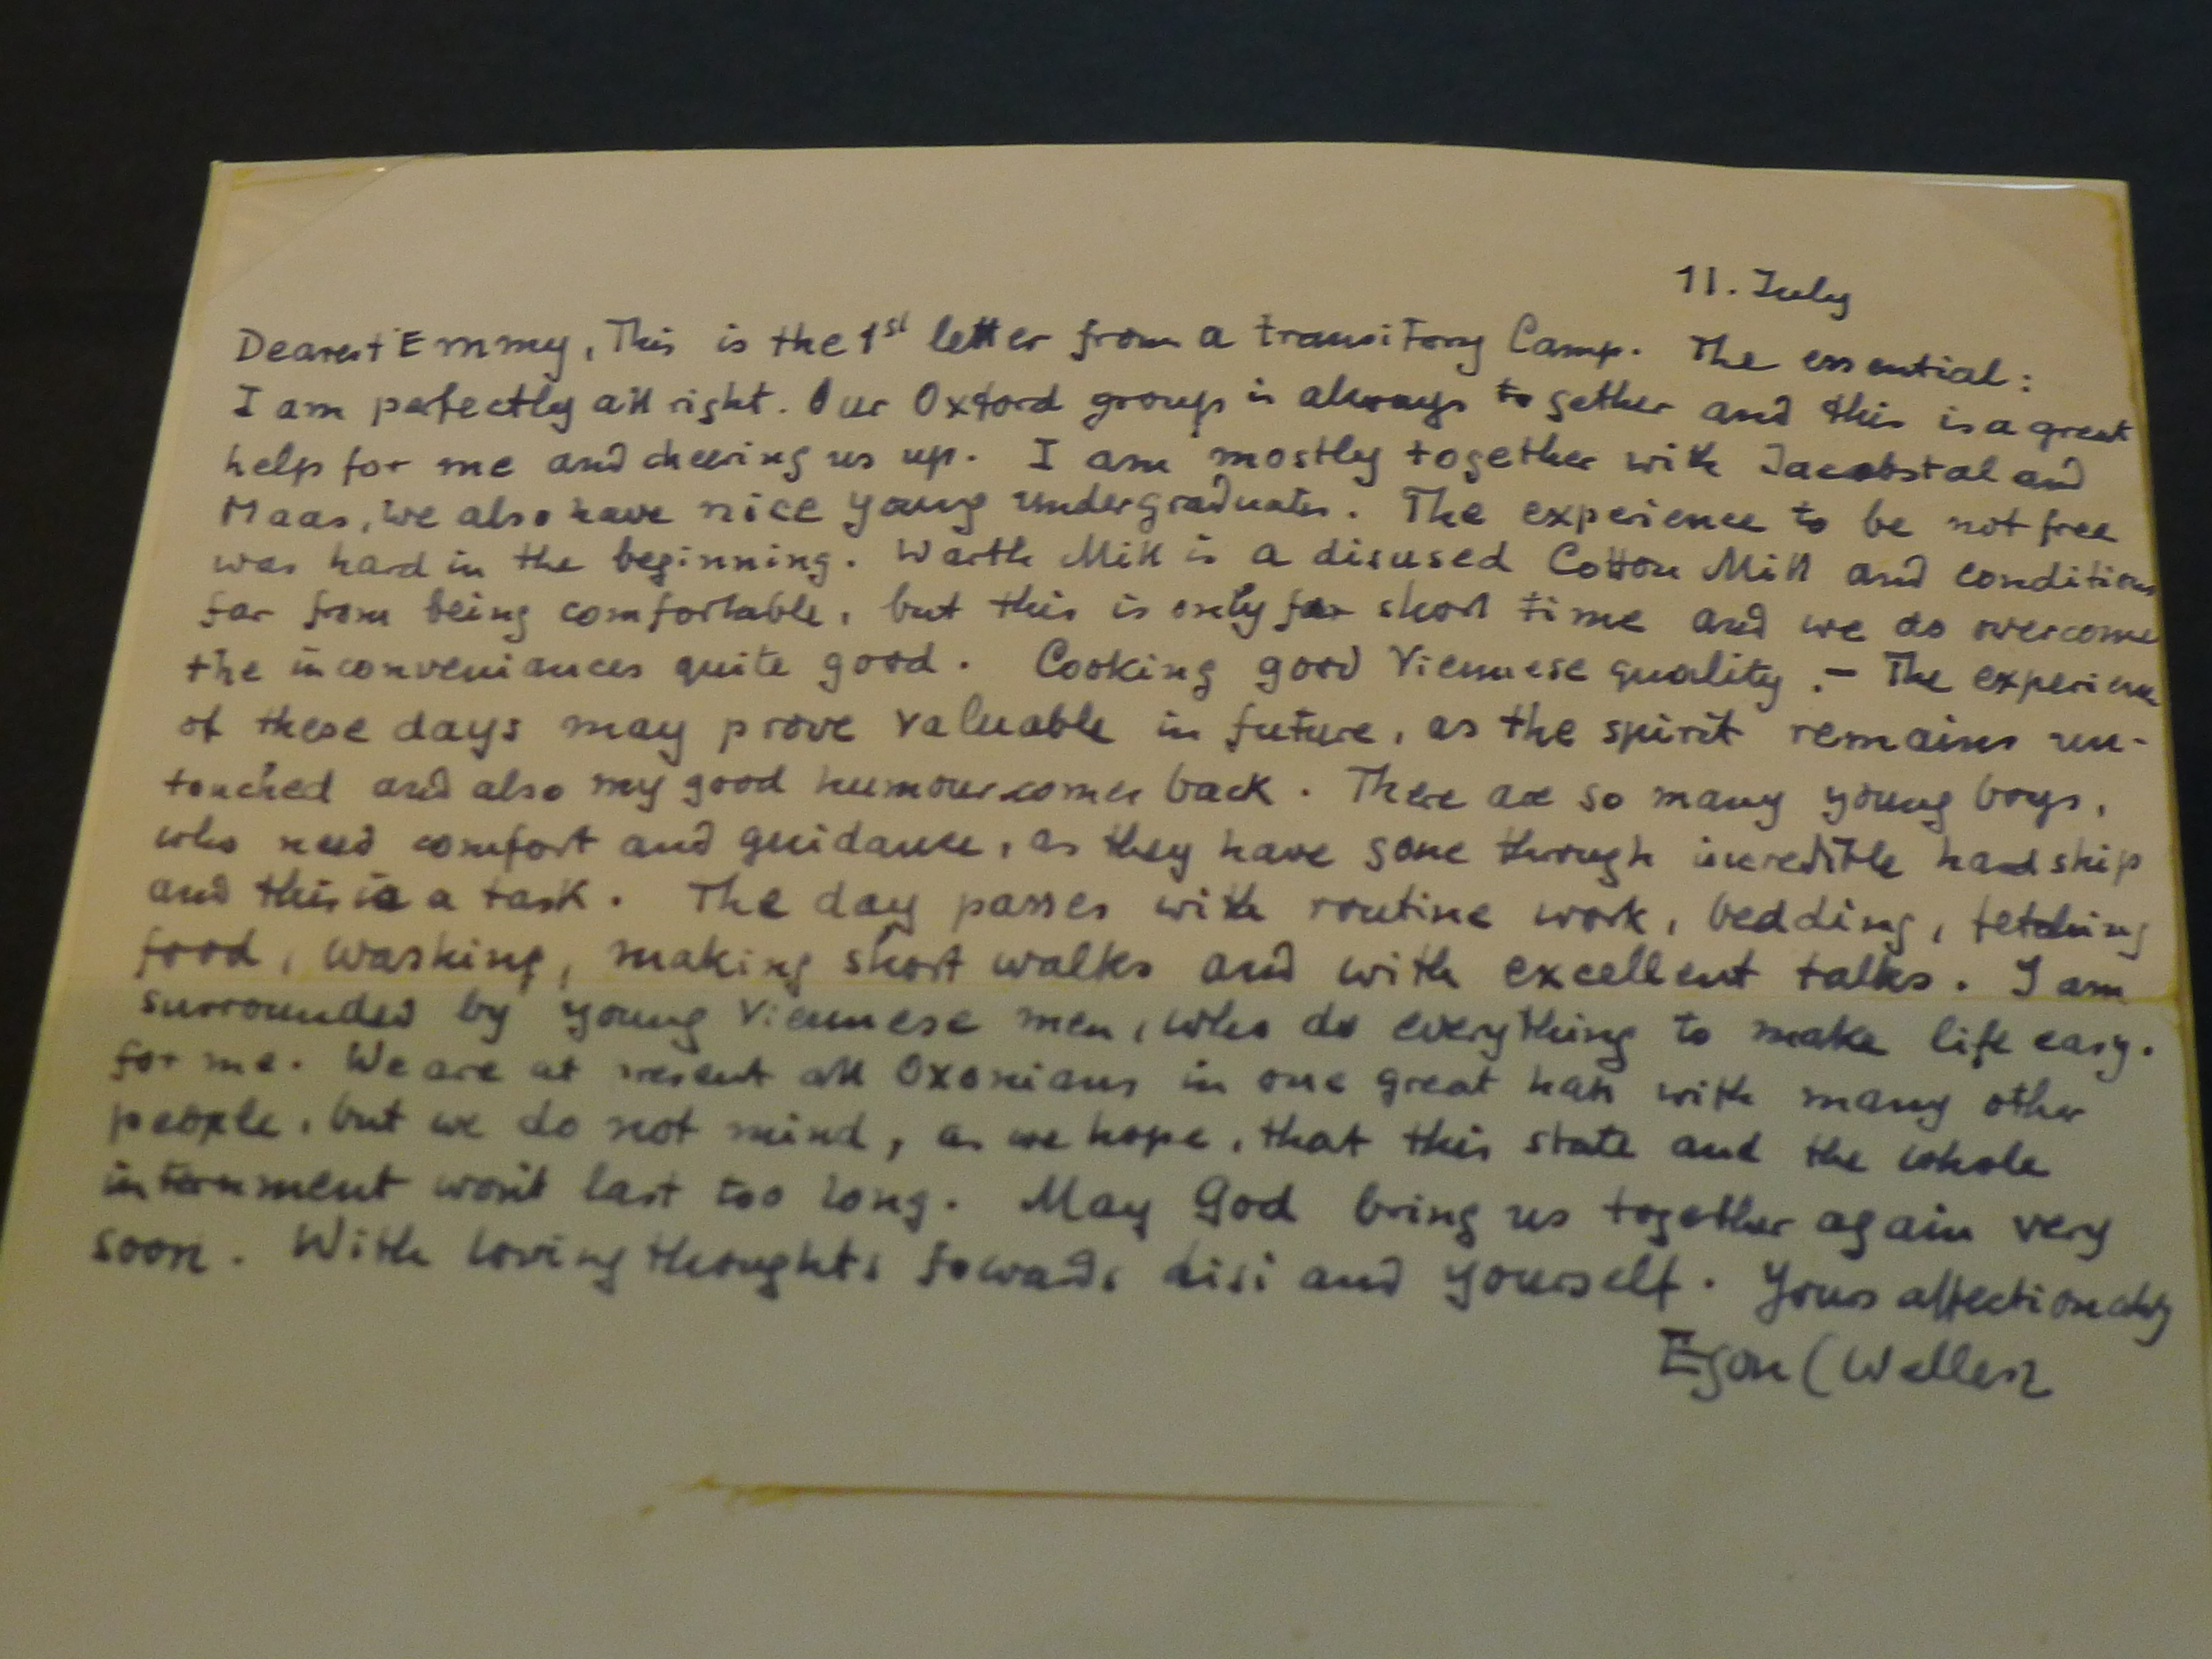 11. July
Dearest Emmy, This is the 1st letter from a transitory Camp. The essential:
I am perfectly all right. Our Oxford group is always together and this is a great
help for me and cheering us up. I am mostly together with Jacobstal and
Maas, we also have nice young undergraduates. The experience to be not free
was hard in the beginning. Warth Mill is a disused Cotton Mill and conditions
far from being comfortable, but this is only for short time and we do overcome
the inconveniances quite good. Cooking good Viennese quality. – The experience
of these days may prove valuable in future, as the spirit remains un-
touched and also my good humour comes back. There are so many young boys,
who need comfort and guidance, as they have gone through incredible hardship
and this is a task. The day passes with routine work, bedding, fetching
food, washing, making short walks and with excellent talks. I am
surrounded by young Viennese men, who do everything to make life easy.
for me. We are at present all Oxonians in one great hall with many other
people, but we do not mind, as we hope, that this state and the whole
internment won't last too long. May God bring us together again very
soon. With loving thoughts towards and yourself. Yours affectionately
Egon (Wellesz